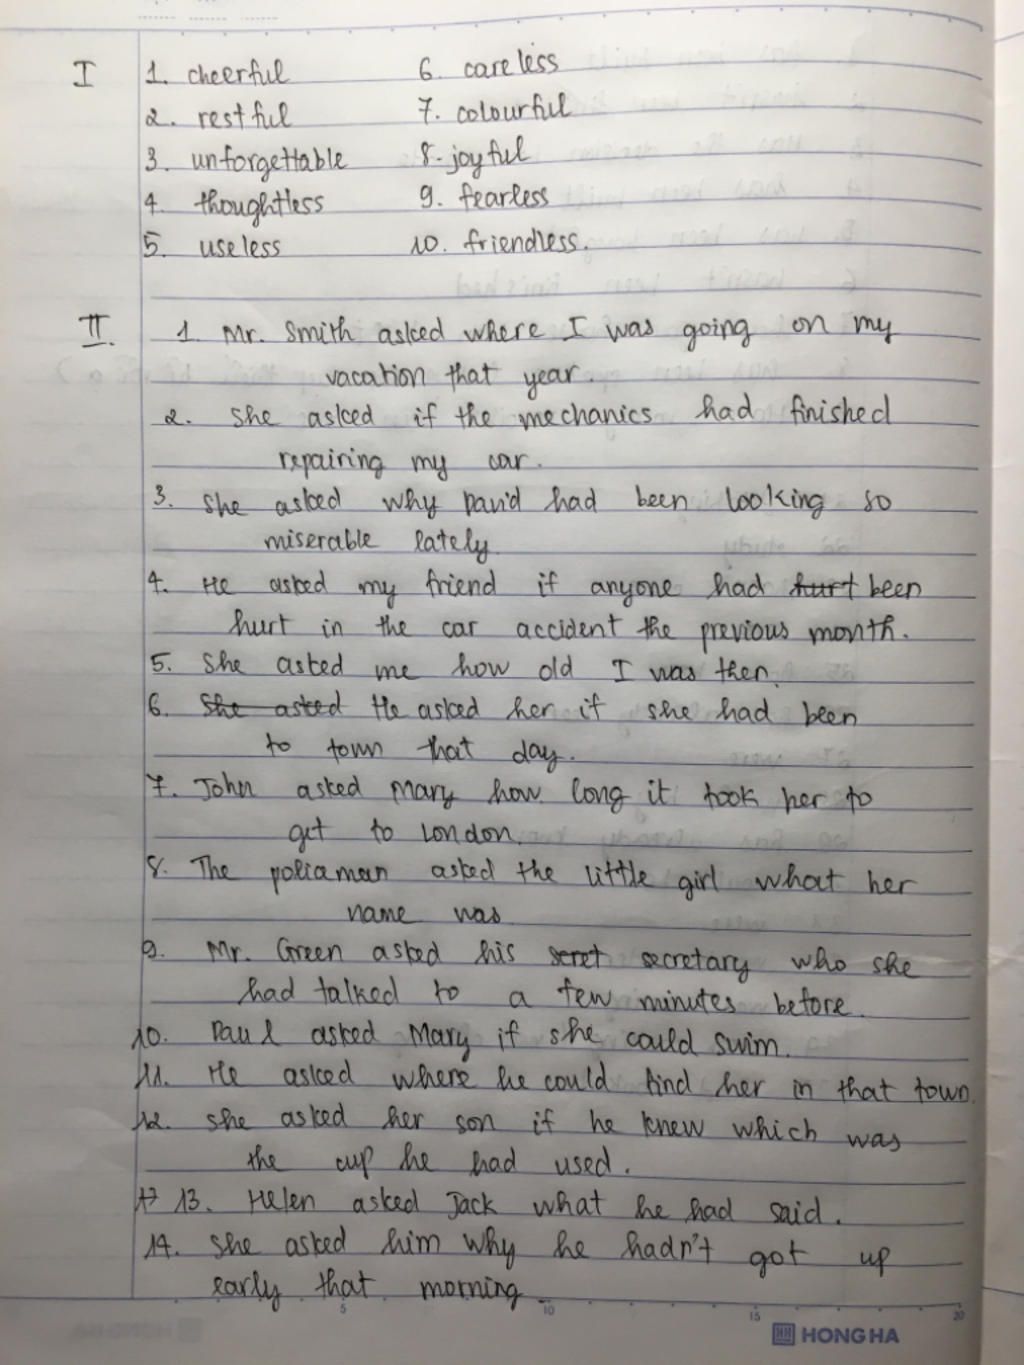 I 1. cheerful 6. careless
2. restful 7. colourful
3. unforgettable 8. joyful
4. thoughtless 9. fearless
5. useless 10. friendless.
II. 1. Mr. Smith asked where I was going on my
vacation that year.
2. She asked if the mechanics had finished
repairing my car.
3. She asked why David had been looking so
miserable lately
4. He asked my friend if anyone had hurt been
hurt in the car accident the previous month.
5. She asked me how old I was then.
6. She asked He asked her if she had been
to town that day.
7. John asked Mary how long it took her to
get to London.
8. The policaman asked the little girl what her
name was
9. Mr. Green asked his seret secretary who she
had talked to a few minutes before.
10. Paul asked Mary if she could swim.
11. He asked where he could find her in that town.
12. She asked her son if he knew which was
the cup he had used.
13. Helen asked Jack what he had said.
14. She asked him why he hadn't got up
early that morning
5 10 15 20
HONG HA